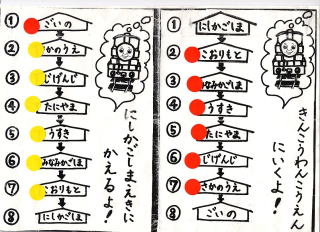 ① ごいの
② かのうえ
③ じげんじ
④ たにやま
⑤ うすき
⑥ みなみかごしま
⑦ こおりもと
⑧ にしかごしま
にしかごしまえきに
かえるよ！
① にしかごしま
② こおりもと
③ みなみかごしま
④ うすき
⑤ たにやま
⑥ じげんじ
⑦ さかのうえ
⑧ ごいの
きんこうわんこうえん
にいくよ！